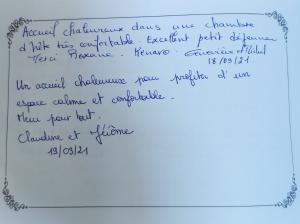 Accueil chaleureux dans une chambre
d'hôte très confortable. Excellent petit déjeuner
Merci Roxane. Kenavo. Geneviève et Michel
18/09/21
Un accueil chaleureux pour profiter d'un
espace calme et confortable.
Merci pour tout.
Claudine et Jérôme
19/09/21